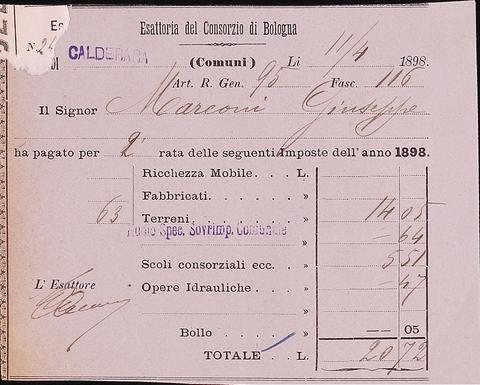 Esattoria del Consorzio di Bologna
N. 2
CALDERARA
(Comuni) Li 11/4 1898.
Art. R. Gen. 95 Fasc. 116
Il Signor Marconi Giuseppe
ha pagato per 2ª rata delle seguenti Imposte dell'anno 1898.
Ricchezza Mobile . . . L.
Fabbricati. . . . . . »
63 Terreni. . . . . . . » 14 05
Spec. Sovrimp. Comunale » — 64
Scoli consorziali ecc. . . » 5 51
L' Esattore Opere Idrauliche . . . » — 47
»
Bollo . . . . . » — — 05
TOTALE . . L. 20 72